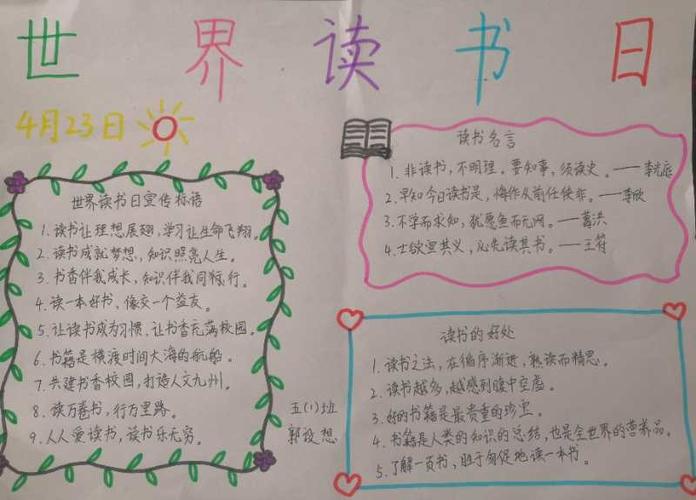 世界读书日
4月23日
世界读书日宣传标语
1. 读书让理想展翅,学习让生命飞翔。
2. 读书成就梦想,知识照亮人生。
3. 书香伴我成长,知识伴我同行。
4. 读一本好书,像交一个益友。
5. 让读书成为习惯,让书香充满校园。
6. 书籍是横渡时间大海的航船。
7. 共建书香校园,打造人文九州。
8. 读万卷书,行万里路。
9. 人人爱读书,读书乐无穷。
五(1)班
郭设想
读书名言
1. 非读书,不明理。要知事,须读史。——李光庭
2. 早知今日读书是,悔作从前任侠非。——李欣
3. 不学而求知,犹愿鱼而无网。——葛洪
4. 士欲宣其义,必先读其书。——王符
读书的好处
1. 读书之法,在循序渐进,熟读而精思。
2. 读书越多,越感到腹中空虚。
3. 好的书籍是最贵重的珍宝。
4. 书籍是人类的知识的总结,也是全世界的营养品。
5. 了解一页书,胜于匆促地读一本书。